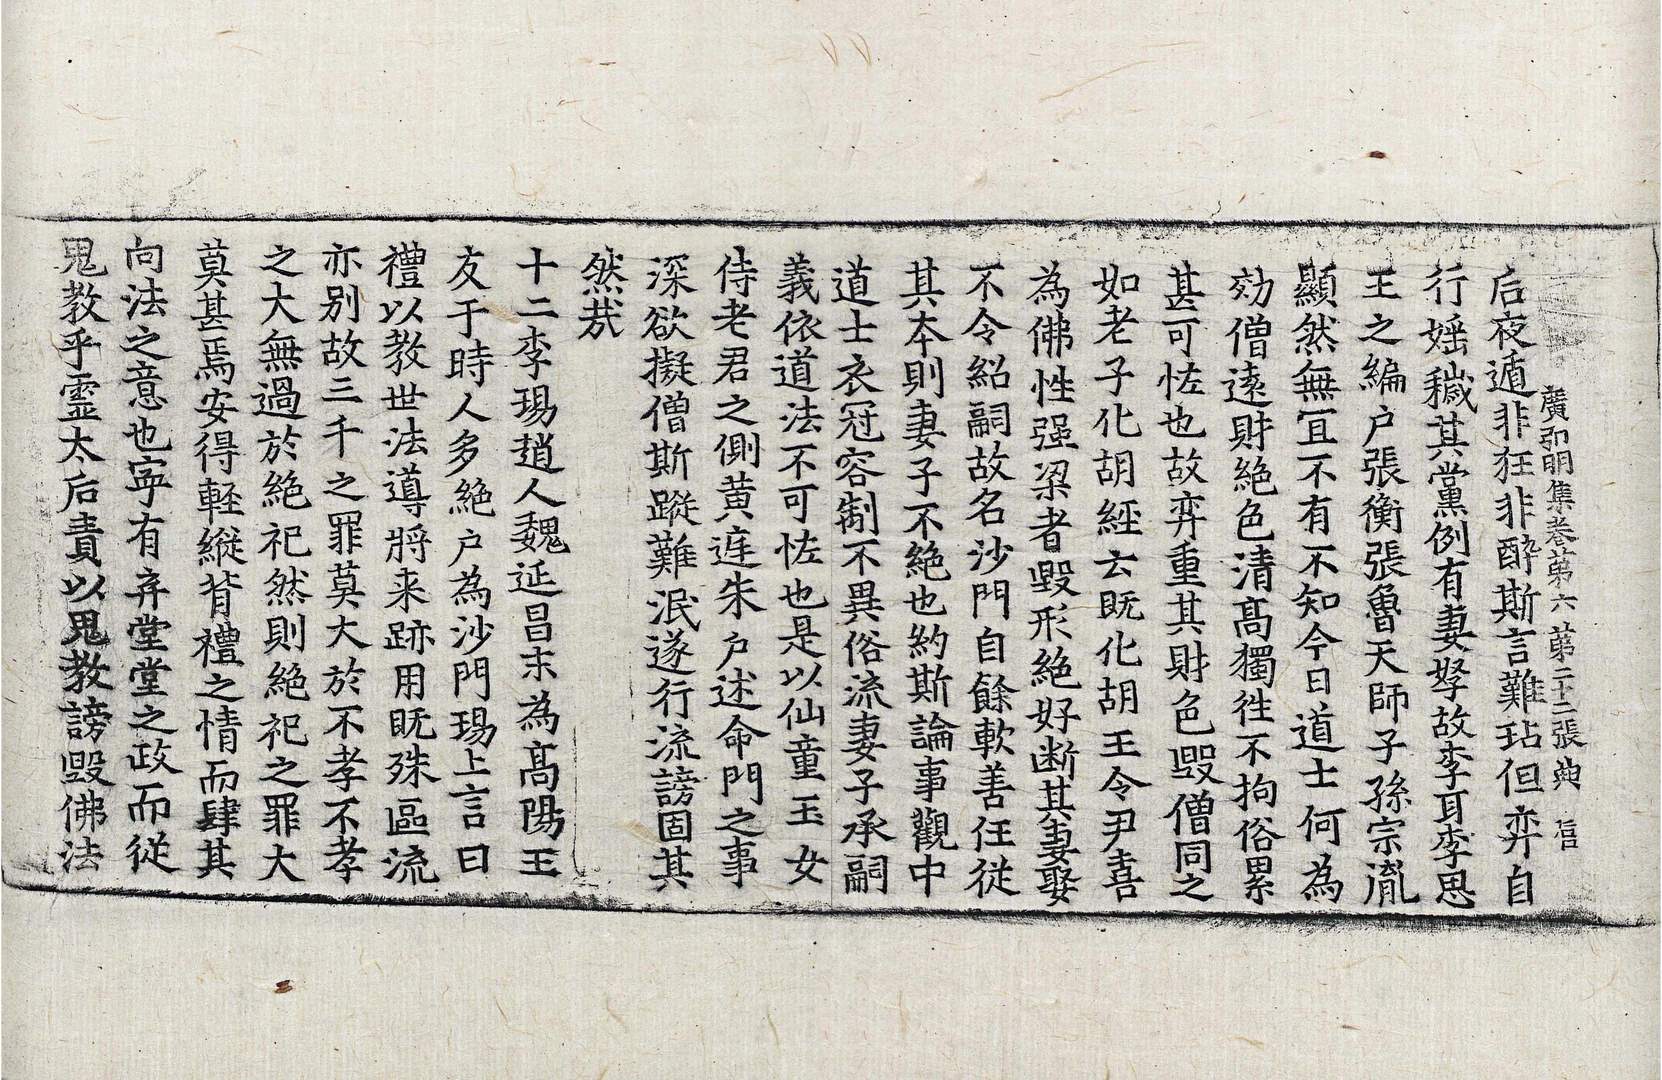 廣弘明集卷第六 第二十二張 典 信
后夜遁非狂非酔斯言難玷但弃自
行婬穢其黨例有妻孥故李耳李恩
王之編户張衡張魯天師子孫宗胤
顯然無冝不有不知今日道士何為
効僧遠財絶色清髙獨徃不拘俗累
甚可怪也故弃重其財色毀僧同之
如老子化胡經云既化胡王令尹喜
為佛性强梁者毀形絶好断其妻娶
不令紹嗣故名沙門自餘軟善任從
其夲則妻子不絶也約斯論事觀中
道士衣冠容制不異俗流妻子承嗣
義依道法不可怪也是以仙童玉女
侍老君之側黄庭朱户述命門之事
深欲擬僧斯蹤難泯遂行流謗固其
然㦲
十二李瑒趙人魏延昌末為髙陽王
友于時人多絶户為沙門瑒上言曰
禮以教世法導將来跡用既殊區流
亦别故三千之罪莫大於不孝不孝
之大無過於絶祀然則絶祀之罪大
莫甚焉安得輕縱背禮之情而肆其
向法之意也寜有弃堂堂之政而從
鬼教乎靈太后責以鬼教謗毀佛法